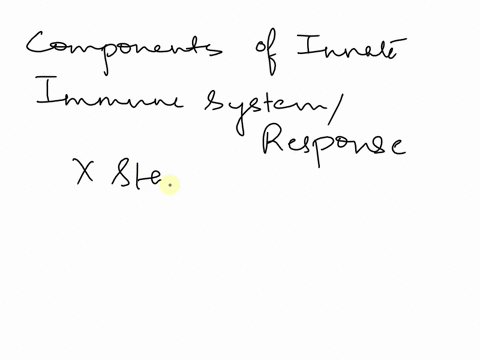 Components of Innate
Immune system/
Response
X Ste